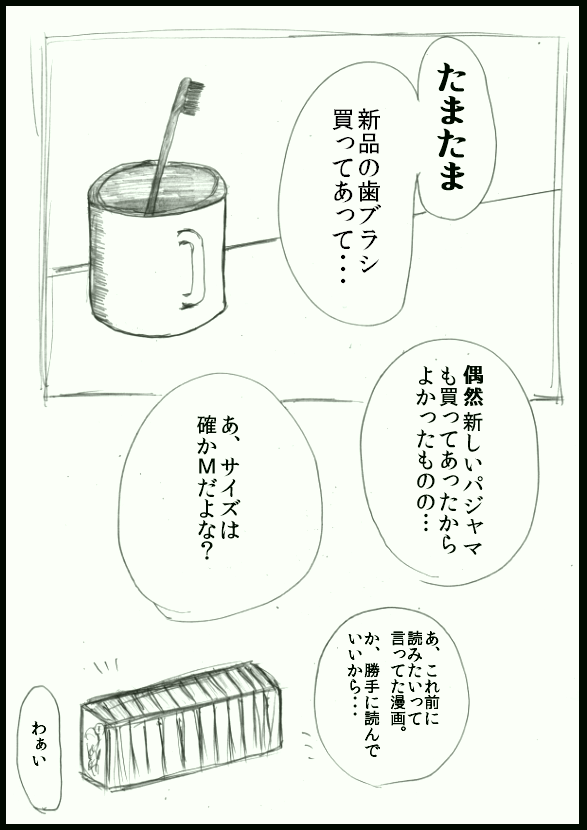 たまたま
新品の歯ブラシ
買ってあって・・・
偶然 新しいパジャマ
も買ってあったから
よかったものの…
あ、サイズは
確かＭだよな？
あ、これ前に
読みたいって
言ってた漫画。
か、勝手に読んで
いいから・・・
わぁい